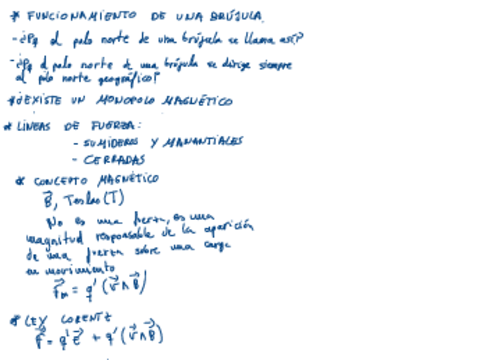 * FUNCIONAMIENTO DE UNA BRÚJULA.
- ¿Pq el polo norte de una brújula se llama así?
- ¿Pq el polo norte de una brújula se dirige siempre
al polo norte geográfico?
* ¿EXISTE UN MONOPOLO MAGNÉTICO
* LÍNEAS DE FUERZA:
- SUMIDEROS Y MANANTIALES
- CERRADAS
* CONCEPTO MAGNÉTICO
B⃗, Teslas (T)
No es una fuerza, es una
magnitud responsable de la aparición
de una fuerza sobre una carga
en movimiento
F⃗m = q' (v⃗ ∧ B⃗)
* LEY LORENTZ
F⃗ = q'E⃗ + q' (v⃗ ∧ B⃗)